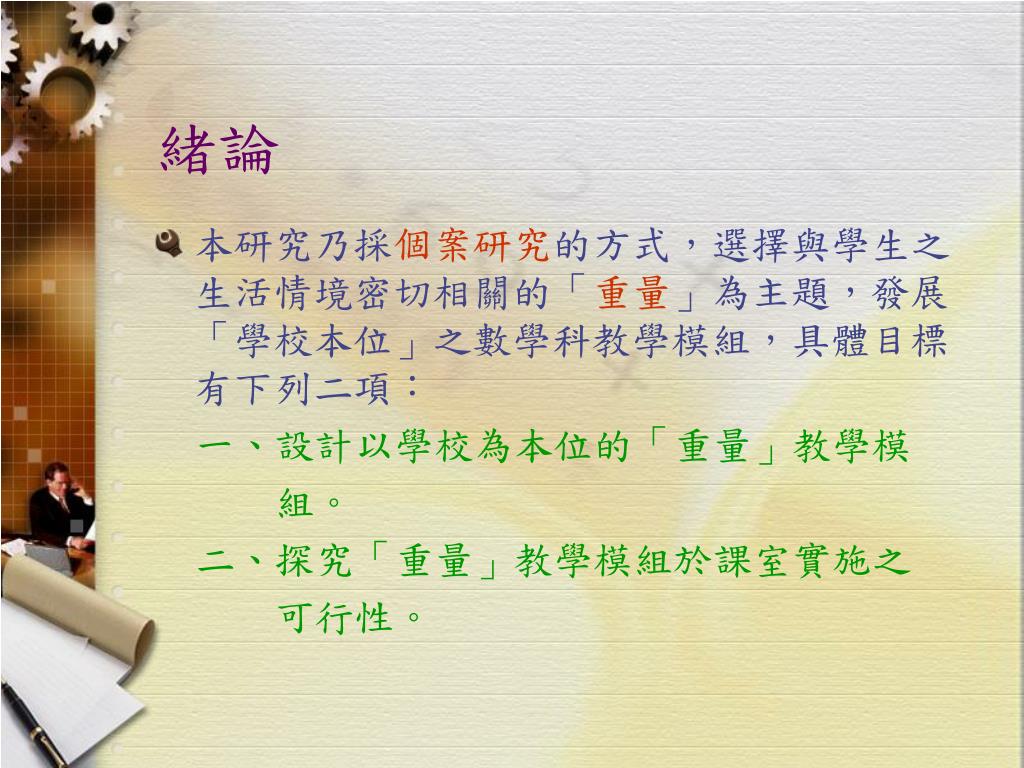 緒論
本研究乃採個案研究的方式，選擇與學生之
生活情境密切相關的「重量」為主題，發展
「學校本位」之數學科教學模組，具體目標
有下列二項：
一、設計以學校為本位的「重量」教學模
組。
二、探究「重量」教學模組於課室實施之
可行性。